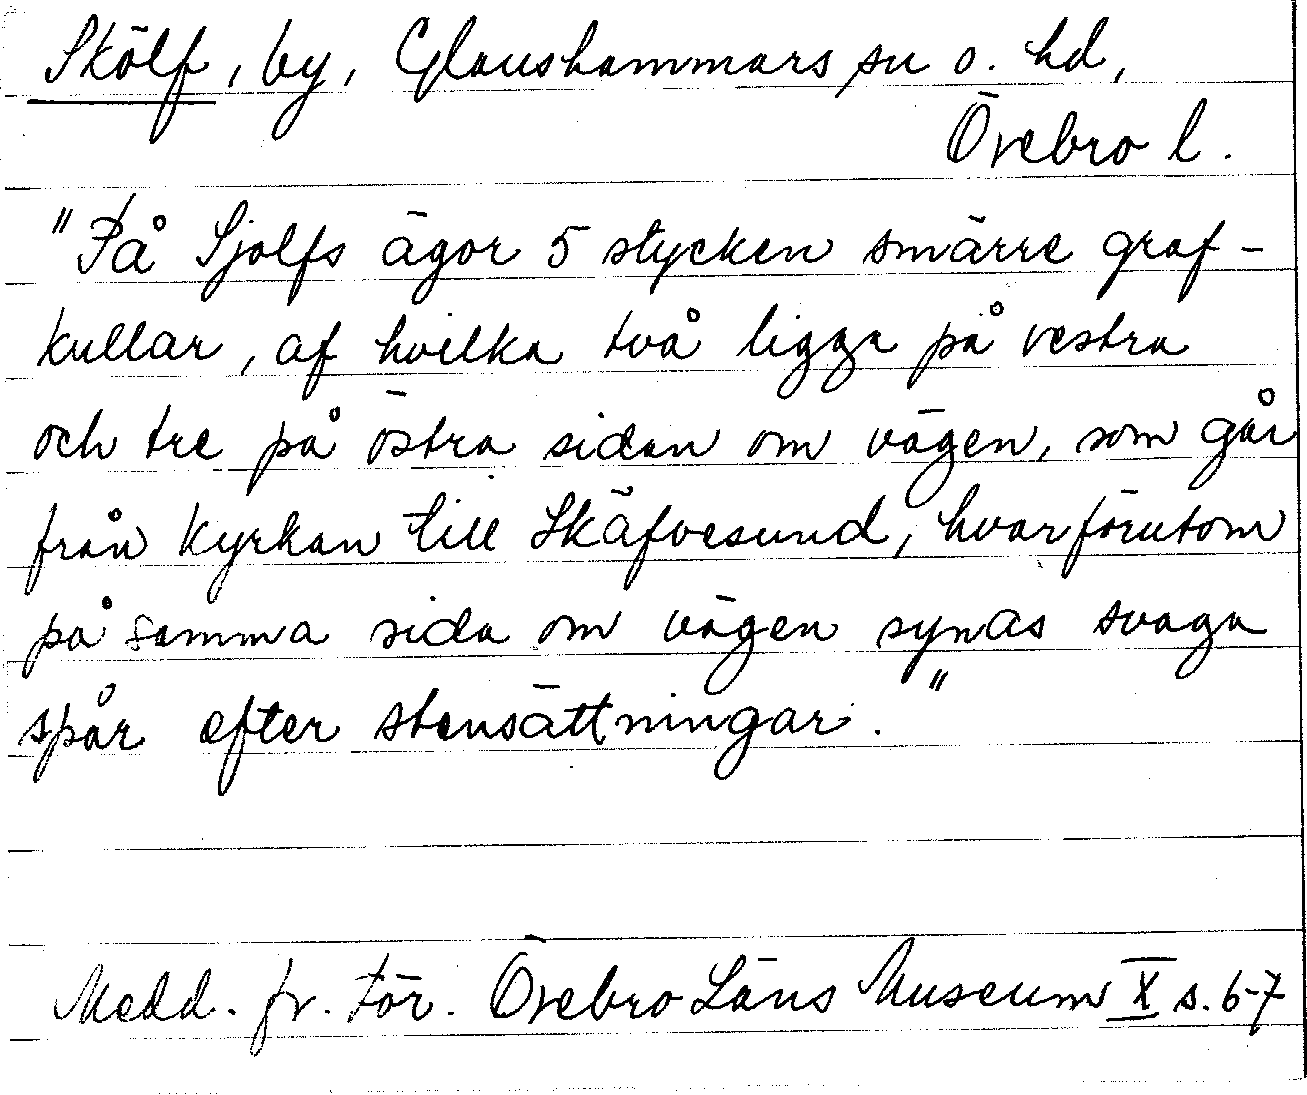 Skölf, by, Glanshammars sn o. hd,
Örebro l.
"På Sjolfs ägor 5 stycken smärre graf-
kullar, af hvilka två ligga på vestra
och tre på östra sidan om vägen, som går
från kyrkan till Skäfvesund, hvarförutom
på samma sida om vägen synas svaga
spår efter stensättningar."
Medd. fr. för. Örebro Läns Museum X s. 6-7